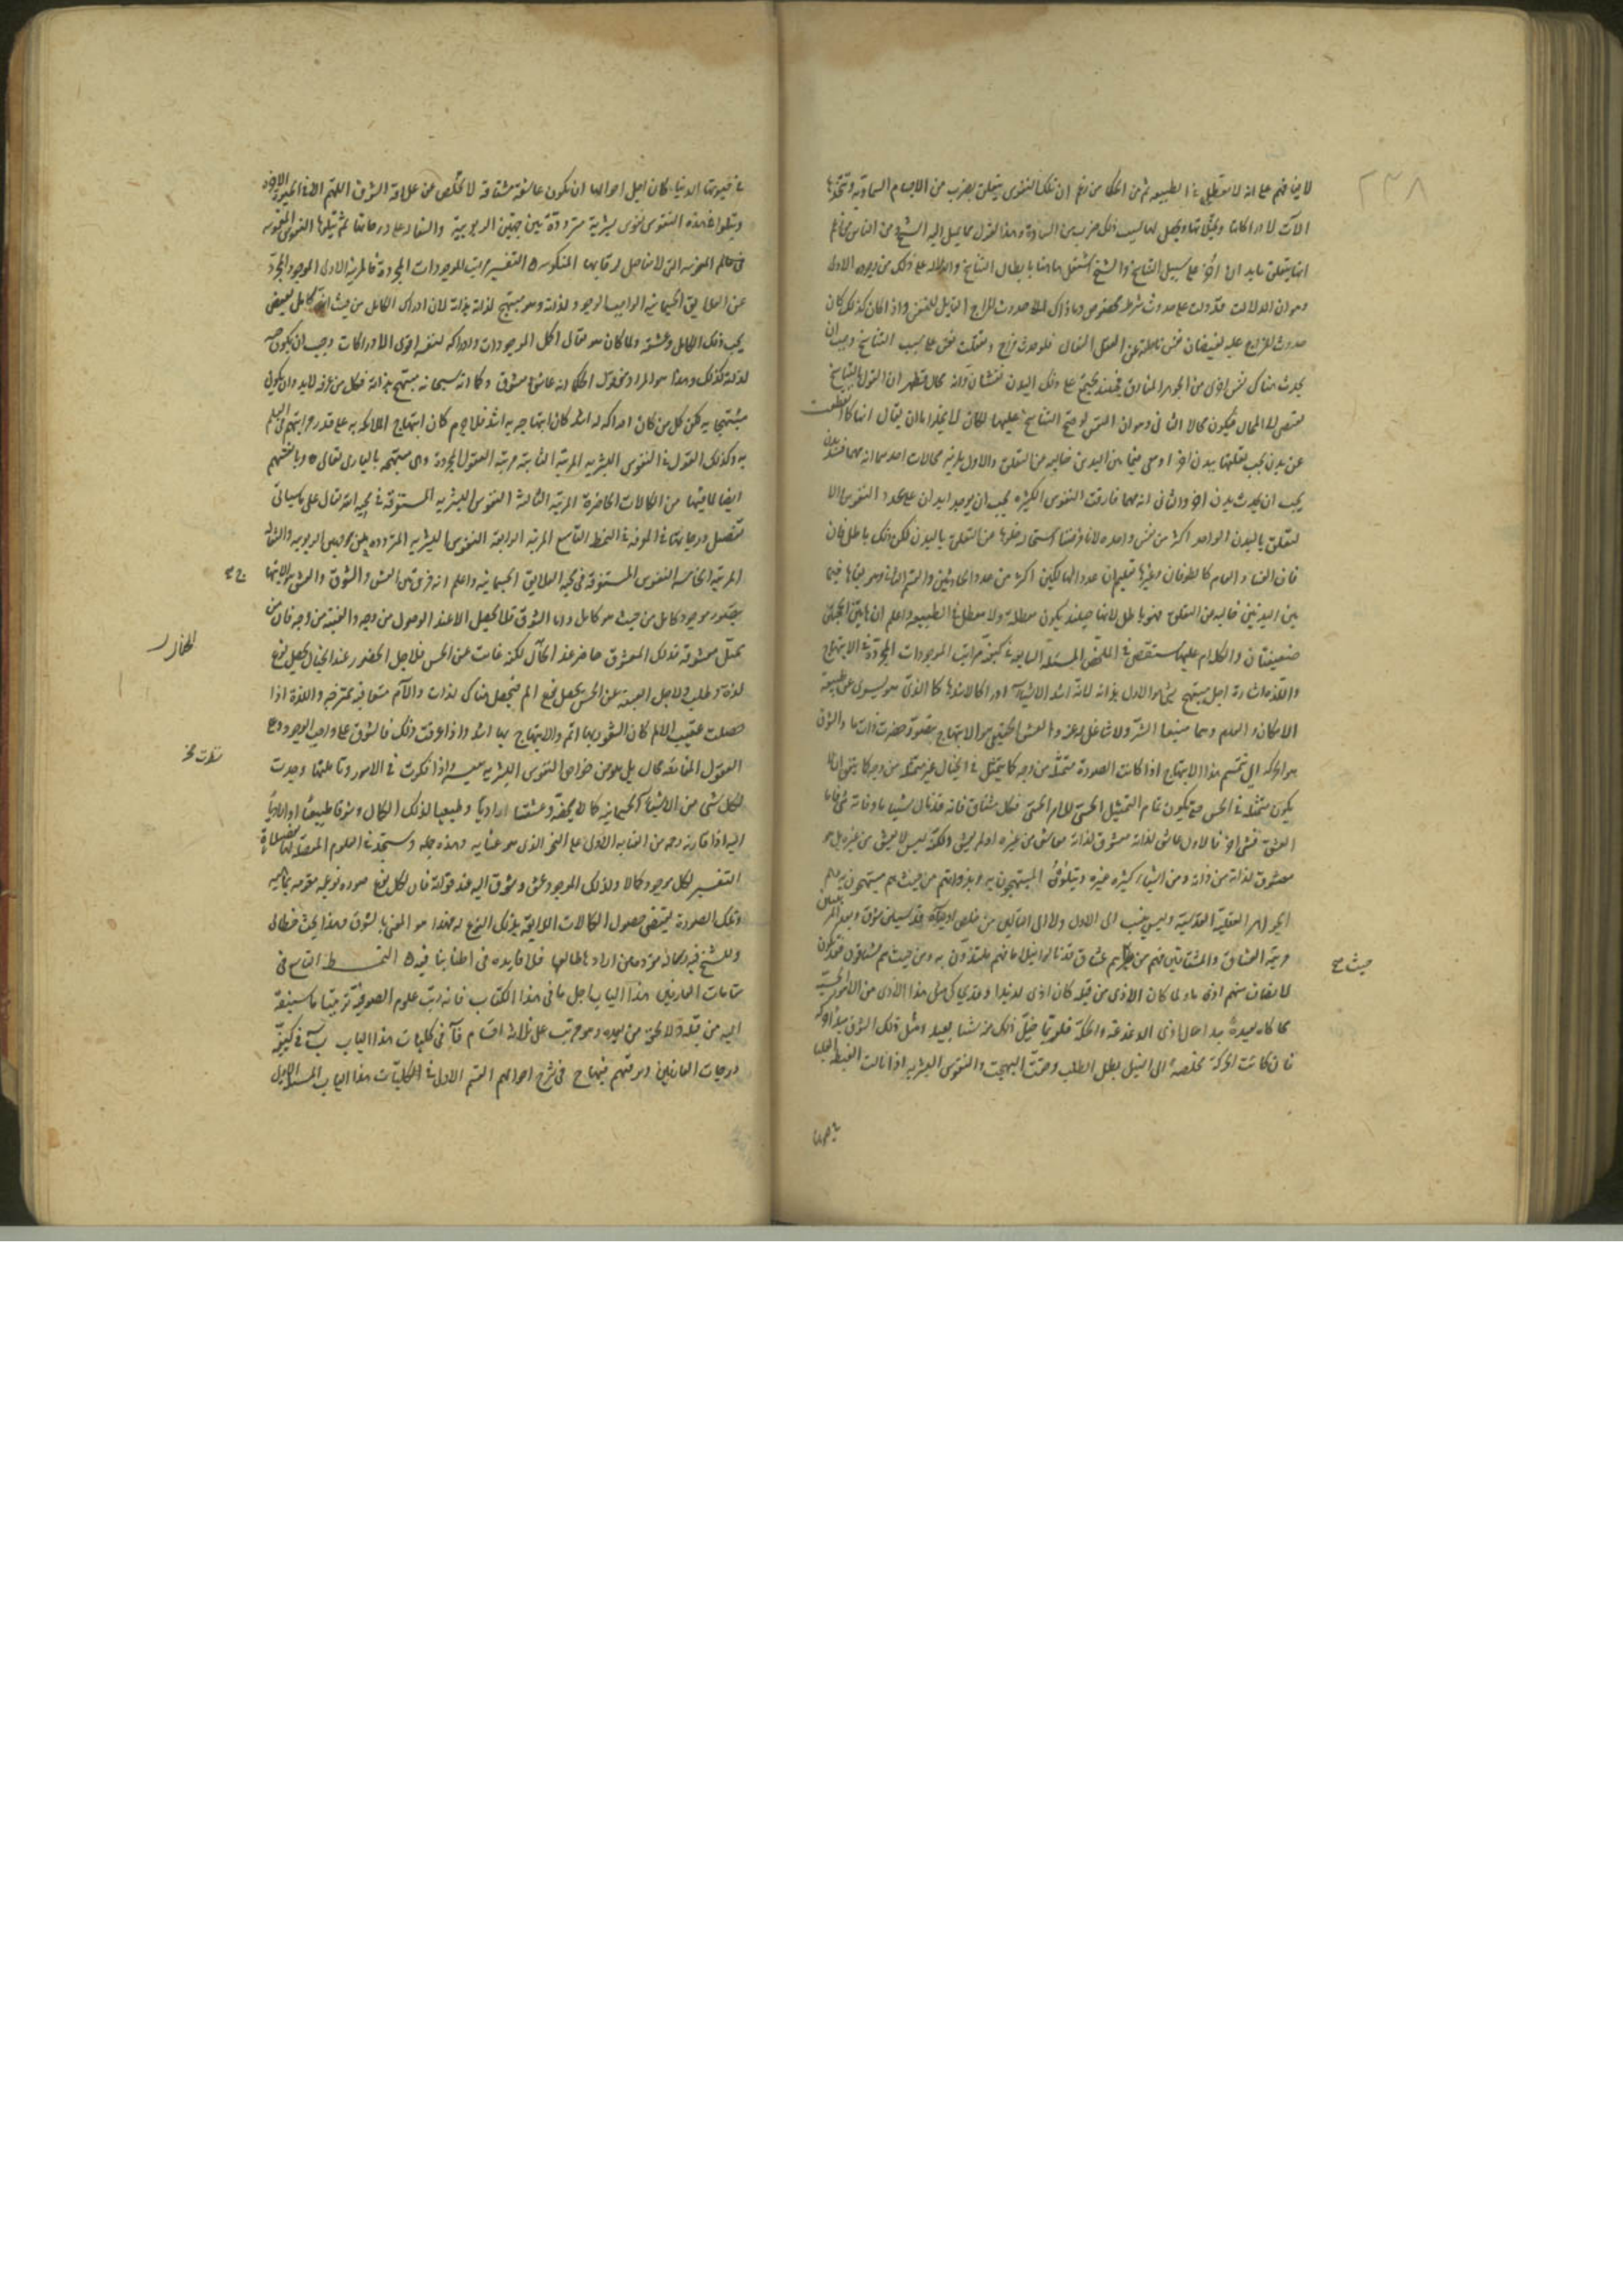 ٢٣٨
لانها فهم على انه لا معطل في الطبيعة ثم من الحكما من زعم ان تلك النفوس يتعلق بضرب من الاجسام السماوية وتتخذها
الآت لادراكاتها وتخيلاتها ويحصل لها بسبب ذلك ضرب من السعادة وهذا القول مما يميل اليه الشيخ ومن الناس من زعم
انها يتعلق بابدان اخر على سبيل التناسخ والشيخ اشتغل هاهنا بابطال التناسخ والدلالة على ذلك من وجوه الاول
وهو ان الدلالة قد دلت على حدوث شرط مخصوص وما ذاك الا حدوث المزاج القابل للنفس واذا كان كذلك كان
حدوث المزاج علة لفيضان نفس ناطقة عن العقل الفعال فلو حدث مزاج وتعلقت نفس على سبيل التناسخ وجب ان
يحدث هناك نفس اخرى من الجوهر المفارق فحينئذ يجتمع على ذلك البدن نفسان وانه محال فظهر ان القول بالتناسخ
يفضي الى المحال فيكون محالا الثاني وهو ان النفس لو صح التناسخ عليها لكان لا يخلو اما ان يقال انها كما انقطعت
عن بدن يجب تعلقها ببدن اخر او يبقى فيما بين البدنين خاليه عن التعلق والاول يلزمه محالات احدها انه مهما فسد بدن
يجب ان يحدث بدن اخر والثاني انه مهما فارقت النفوس الكثيرة يجب ان يوجد ابدان على عدد النفوس والا
لتعلق بالبدن الواحد اكثر من نفس واحدة لانا فرضنا استحالة خلوها عن التعلق بالبدن لكن ذلك باطل فان
فان الفساد العام كالطوفان وغيرها نعلم ان عدد الهالكين اكثر من عدد الحادثين والقسم الثاني وهو بقاها فيما
بين البدنين خاليه عن التعلق فهو باطل لانها حينئذ يكون معطلة ولا معطل في الطبيعة واعلم ان هاتين الحجتين
ضعيفتان والكلام عليهما مستقصى في الملخص المسئلة السابعة في كيفية مراتب الموجودات المجردة في الابتهاج
واللذة اشارة اجل مبتهج بشئ هو الاول بذاته لانه اشد الاشياء ادراكا لاشدها كمالا الذي هو برئ عن طبيعة
الامكان والعدم وهما منبعا الشر ولا شاغل له عنه والعشق الحقيقي هو الابتهاج بتصور حضرت ذات ما والشوق
هو الحركة الى تتميم هذا الابتهاج اذا كانت الصورة متمثلة من وجه كما يتمثل في الخيال غير متمثلة من وجه كما يتفق ان لا
يكون متمثلة في الحس حتى يكون تمام التمثيل الحسي للامر الحسي فكل مشتاق فانه قد نال شيئا ما وفاته شئ فاما
العشق فشئ اخر فالاول عاشق لذاته معشوق لذاته عشق من غيره او لم يعشق ولكنه ليس لا يعشق من غيره بل هو
معشوق لذاته من ذاته ومن اشياء كثيرة غيره ويتلوه المبتهجون به وبذواتهم من حيث هم مبتهجون به وهم
الجواهر العقلية القدسية وليس ينسب الى الاول ولا الى التالين من خلص اوليائه القدسيين شوق وبعد المرتبتين
مرتبة العشاق المشتاقين فهم من حيث هم عشاق قد نالوا نيلا ما فهم ملتذون به ومن حيث هم مشتاقون فقد يكون
لاصناف منهم اذى ما ولما كان الاذى من قبله كان اذى لذيذا وقد يحاكي مثل هذا الاذى من الامور الحسية
محاكاة بعيدة جدا حال اذى الدغدغة والحكة فلربما خيل ذلك منه شيئا بعيدا ومثل ذلك الشوق مبدا حركة
فان كانت الحركة مخلصة الى النيل بطل الطلب وحقت البهجت والنفوس البشريه اذا نالت الغبطة العليا
حيث هم
في حيوتها الدنيا كان اجل احوالها ان تكون عاشقة مشتاقة لا تخلص عن علاقة الشوق اللهم الا في الحيوة الاخرى
ويتلوا هذه النفوس نفوس بشرية مترددة بين جهتين الربوبية والسفاله على درجاتها ثم يتلوها النفوس المغموسة
في عالم الطبيعة المنحوسة التي لا مفاصل لرقابها المنكوسة التفسير مراتب الموجودات المجردة فالمرتبة الاولى الموجود المجرد
عن العلايق الجسمانيه الواجب الوجود لذاته وهو مبتهج لذاته بذاته لان ادراك الكامل من حيث انه كامل يقتضي
بحب ذلك الكامل وعشقه ولما كان هو تعالى اكمل الموجودات وادراكه لنفسه اقوى الادراكات وجب ان يكون حبه
لذاته كذلك وهذا هو المراد من قول الحكما انه عاشق معشوق وكما انه سبحانه مبتهج بذاته فكل من عرفه لابد وان يكون
مبتهجا به لكن كل من كان ادراكه له اشد كان ابتهاجه به اشد فلا جرم كان ابتهاج الملائكه به على قدر مراتبهم في العلم
به وكذلك القول في النفوس البشريه المرتبة الثانية مرتبة العقول المجردة وهي مبتهجة بالباري تعالى وبانفسهم
ايضا لما فيها من الكمالات الحاضرة المرتبة الثالثة النفوس البشريه المستغرقة في محبة الله تعالى على ما سياتي
تفصيل درجاتها في المعرفة في النمط التاسع المرتبة الرابعة النفوس البشريه المتردده بين جهتي الربوبيه والسفاله
المرتبة الخامسة النفوس المستغرقة في محبة العلايق الجسمانيه واعلم انه فرق بين العشق والشوق والعشق هو الابتهاج
بتصور موجود كامل من حيث هو كامل واما الشوق فلا يحصل الا عند الوصول من وجه والغيبة من وجه فان من
تمثل معشوقه فذلك المعشوق حاضر عند الخيال لكنه غائب عن الحس فلاجل الحضور عند الخيال يحصل نوع
لذة وطلب ولاجل الغيبة عن الحس يحصل نوع الم فيحصل هناك لذات والآم متعاقبة ممتزجه واللذة اذا
حصلت عقيب الالم كان الشعور بها اتم والابتهاج بها اشد واذا عرفت ذلك فالشوق على واجب الوجود وعلى
العقول الفعاله محال بل هو من خواص النفوس البشريه تنبيه واذا نظرت في الامور وتاملتها وجدت
لكل شئ من الاشياء الجسمانية كمالا يخصه وعشقا اراديا وطبيعيا لذلك الكمال وشوقا طبيعيا او اراديا
اليه اذا فارقه رحمة من العناية الاولى على النحو الذي هو عناية وهذه جملة وستجد في العلوم المفصلة لها تفصيلا
التفسير لكل موجود كمالا ولذلك الموجود عشق وشوق اليه عند فواته فان لكل نوع صوره نوعيه مقومه لماهيته
وتلك الصورة تقتضي حصول الكمالات اللائقة بذلك النوع له فهذا هو المعني بالشوق وهذا بحث خطابي
وللشيخ فيه رسالة مفردة من ارادها طالعها فلا فايده في اطنابنا فيه النمط التاسع في
مقامات العارفين هذا الباب اجل ما في هذا الكتاب فانه رتب علوم الصوفية ترتيبا ما سبقه
اليه من قبله ولا لحقه من بعده وهو مرتب على ثلاثة اقسام في كليات هذا الباب في كيفية
درجات العارفين ومعرفتهم في شرح احوالهم القسم الاول في الكليات هذا الباب المسئلة الاولى